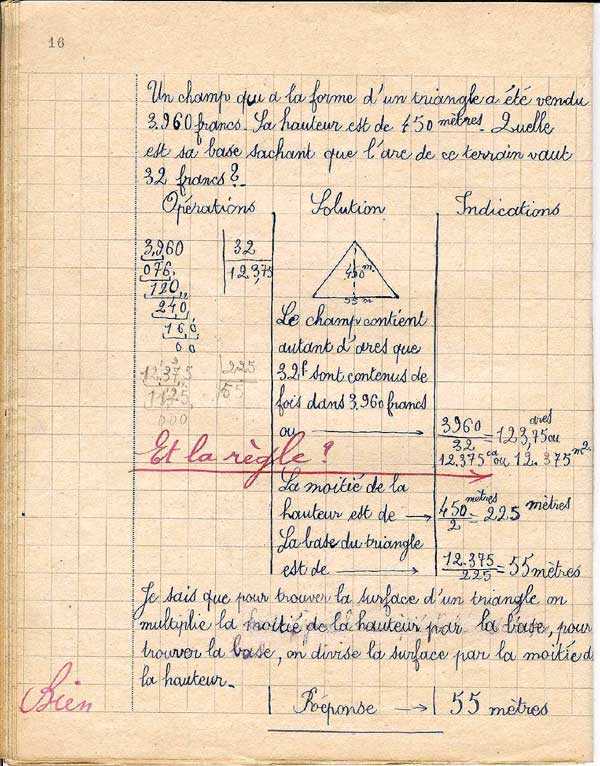 16
Un champ qui a la forme d'un triangle a été vendu
3.960 francs. La hauteur est de 450 mètres. Quelle
est sa base sachant que l'are de ce terrain vaut
32 francs?
Opérations
3.960 | 32
076, | 123,75
120,
240,
160
00
12.375 | 225
1125 | 55
000
Solution
450 m.
55 m
Le champ contient
autant d'ares que
32f sont contenus de
fois dans 3.960 francs
ou →
Et la règle?
La moitié de la
hauteur est de →
La base du triangle
est de →
Indications
3960/32 = 123,75 ares ou
12.375 ca ou 12.375 m2.
450 mètres/2 = 225 mètres
12.375/225 = 55 mètres
Je sais que pour trouver la surface d'un triangle on
multiplie la moitié de la hauteur par la base, pour
trouver la base, on divise la surface par la moitié d
la hauteur.
Bien
Réponse → 55 mètres